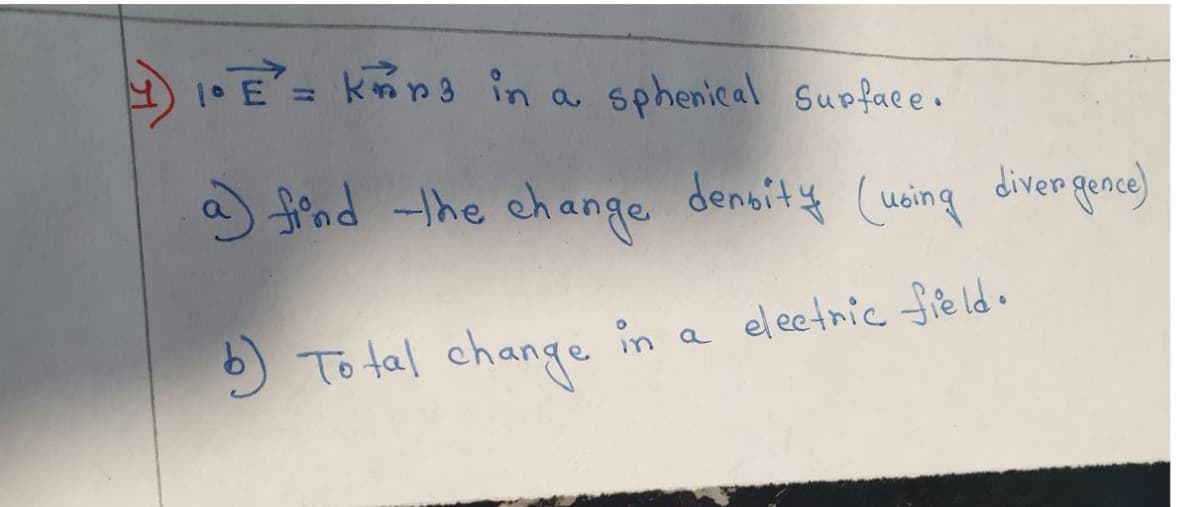 4) 1. E⃗ = k r⃗ r3 in a spherical surface.
a) find the charge density (using divergence)
b) Total charge in a electric field.